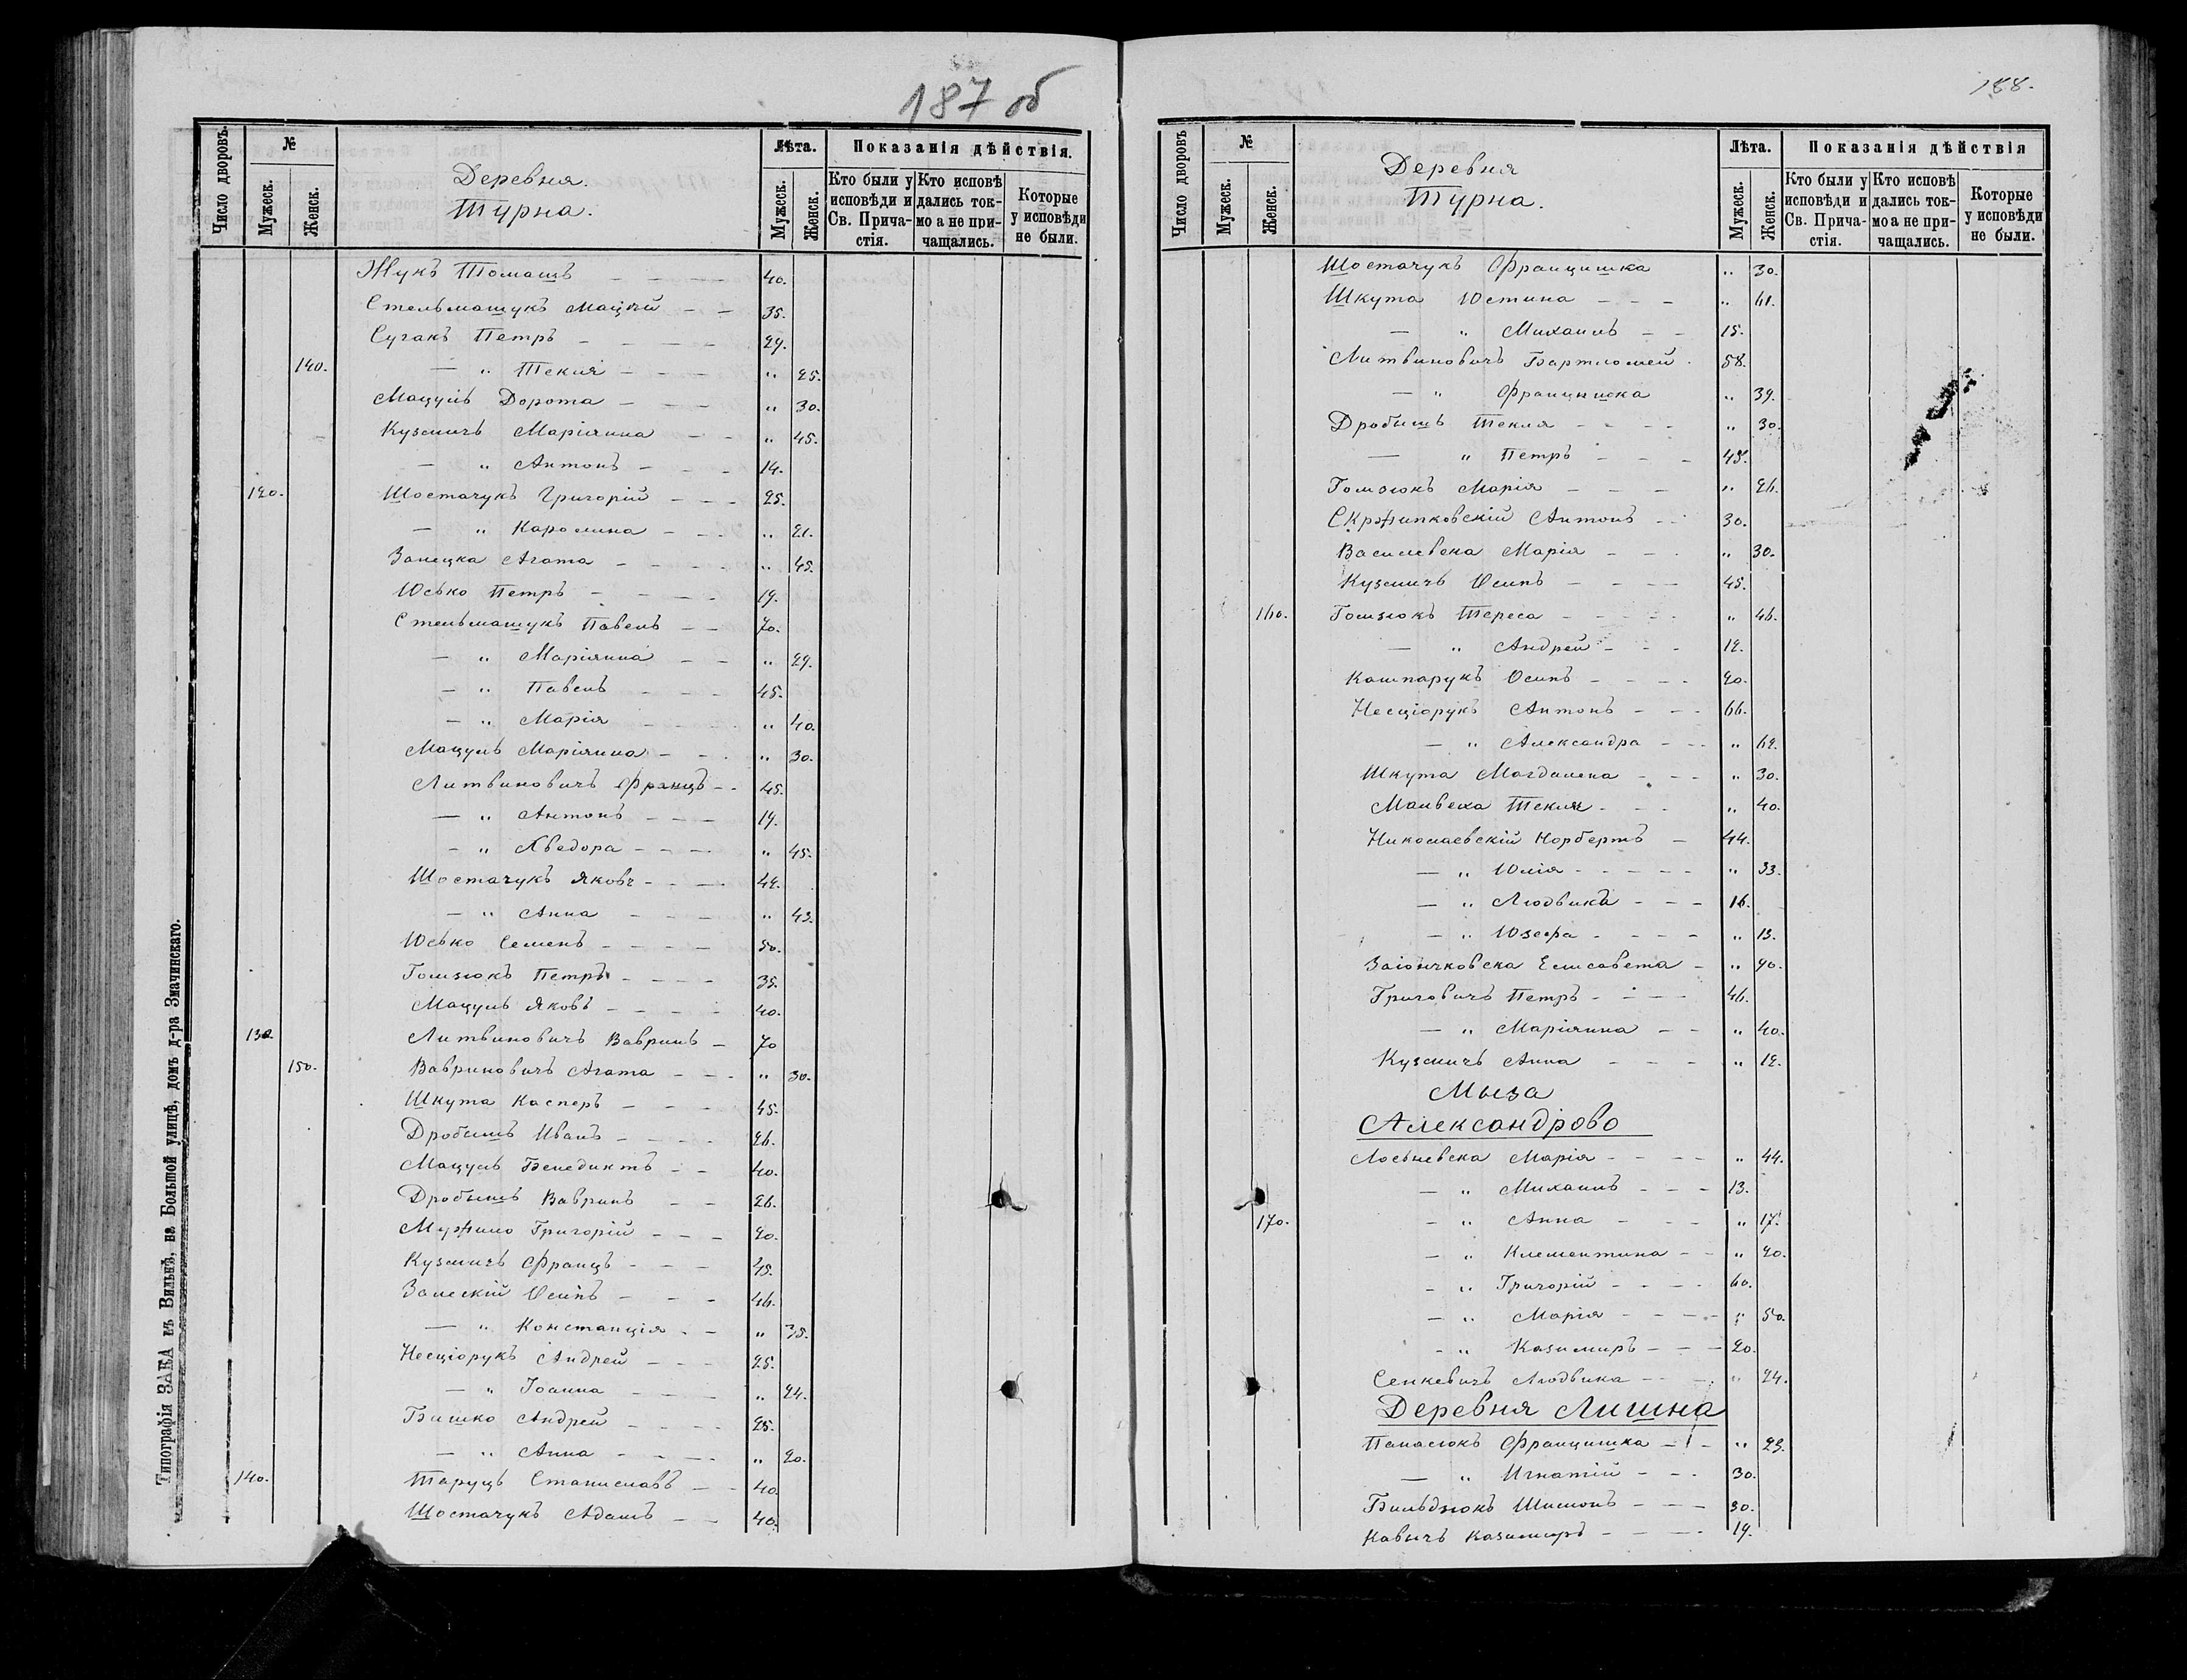 187 об
Число дворовъ. № Лѣта. Показанія дѣйствія.
Мужеск. Женск. Деревня. Мужеск. Женск. Кто были у исповѣди и Св. Причастія. Кто исповѣдались токмо а не причащались. Которые у исповѣди не были.
Турна.
Жукъ Томашъ — — — 40.
Стельмашукъ Мацѣй — — 35.
Сугакъ Петръ — — — — 29.
140. — „ Текля — — — „ 25.
Мацуль Дорота — — — „ 30.
Кузмичъ Маріянна — — „ 45.
— „ Антонъ — — — 14.
120. Шостачукъ Григорій — — — 25.
— „ Каролина — — — „ 21.
Занецка Агата — — — — „ 45.
Юсько Петръ — — — — 19.
Стельмашукъ Павелъ — — 70.
— „ Маріянна — — „ 29.
— „ Павелъ — — — 45.
— „ Марія — — — — „ 40.
Мацуль Маріянна — — . „ 30.
Литвиновичъ Францъ — — 45.
— „ Антонъ — — — 19.
— „ Хведора — — — „ 45.
Шостачукъ Яковъ — — — 42.
— „ Анна — — — „ 43.
Юсько Семенъ — — — — 50.
Гомзюкъ Петръ — — — — 35.
Мацуль Яковъ — — — — 40.
130. Литвиновичъ Вавринъ — 70
150. Вавриновичъ Агата — — — „ 30.
Шкута Касперъ — — — 45.
Дробышъ Иванъ — — — — 26.
Мацуль Бенедиктъ — — 40.
Дробышъ Вавринъ — — 26.
Григорій — — — 20.
Кузмичъ Францъ — — — 45.
Залескій Осипъ — — — 46.
— „ Констанція — — „ 35.
Несціорукъ Андрей — — — 25.
— „ Іоанна — — — „ 24.
Бишко Андрей — — — — 25.
— „ Анна — — — — „ 20.
140. Таруцъ Станиславъ — — 40.
Шостачукъ Адамъ — — 40.
Типографія ЗАКА въ Вильнѣ, на Большой улицѣ, домъ д-ра Значинскаго.
188.
Число дворовъ № Лѣта. Показанія дѣйствія
Мужеск. Женск. Деревня Мужеск. Женск. Кто были у исповѣди и Св. Причастія. Кто исповѣдались токмо а не причащались. Которые у исповѣди не были.
Турна.
Шостачукъ Францишка „ 30.
Шкута Юстина — — — „ 61.
— „ Михаилъ — — 15.
Литвиновичъ Бартломей . 58.
— „ Францишка „ 39.
Дробышъ Текля — — — — „ 30.
— „ Петръ — — — 45.
Гомзюкъ Марія — — — „ 26.
Антонъ — — 30.
Василевска Марія — — . „ 30.
Кузмичъ Осипъ — — — 45.
160. Гомзюкъ Тереса — — — — „ 46.
— „ Андрей — — — 12.
Кашпарукъ Осипъ — — — — 20.
Несціорукъ Антонъ — — — 66.
— „ Александра — — — „ 62.
Шкута Магдалена — — — „ 30.
Текля — — — „ 40.
Николаевскій Норбертъ — 44.
— „ Юлія — — — — — „ 33.
— „ Людвика — — — 16.
— „ Юзефа — — — — „ 13.
Заіончковска Елисавета — „ 90.
Григовичъ Петръ — — — — 46.
— „ Маріянна — — „ 40.
Кузмичъ Анна — — — „ 12.
Мыза
Александрово
Марія — — — — „ 44.
— „ Михаилъ — — — 13.
170. — „ Анна — — — „ 17.
— „ Клементина — — „ 20.
— „ Григорій — — — — 60.
— „ Марія — — — — „ 50.
— „ Казимиръ — — — 20.
Сенкевичъ Людвика — — — „ 24.
Деревня Лишна
Панасюкъ Францишка — — „ 23.
— „ Игнатій — — . 30.
Бильдзюкъ Шимонъ — — — 30.
Кавичъ Казимиръ — — — — 19.